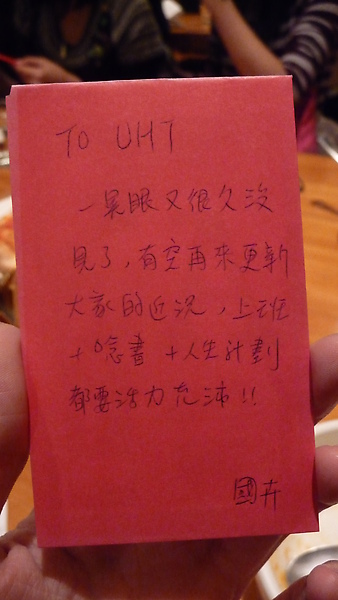 TO UHT
一晃眼又很久沒
見了，有空再來更新
大家的近況，上班
+唸書 +人生計劃
都要活力充沛!!
國卉